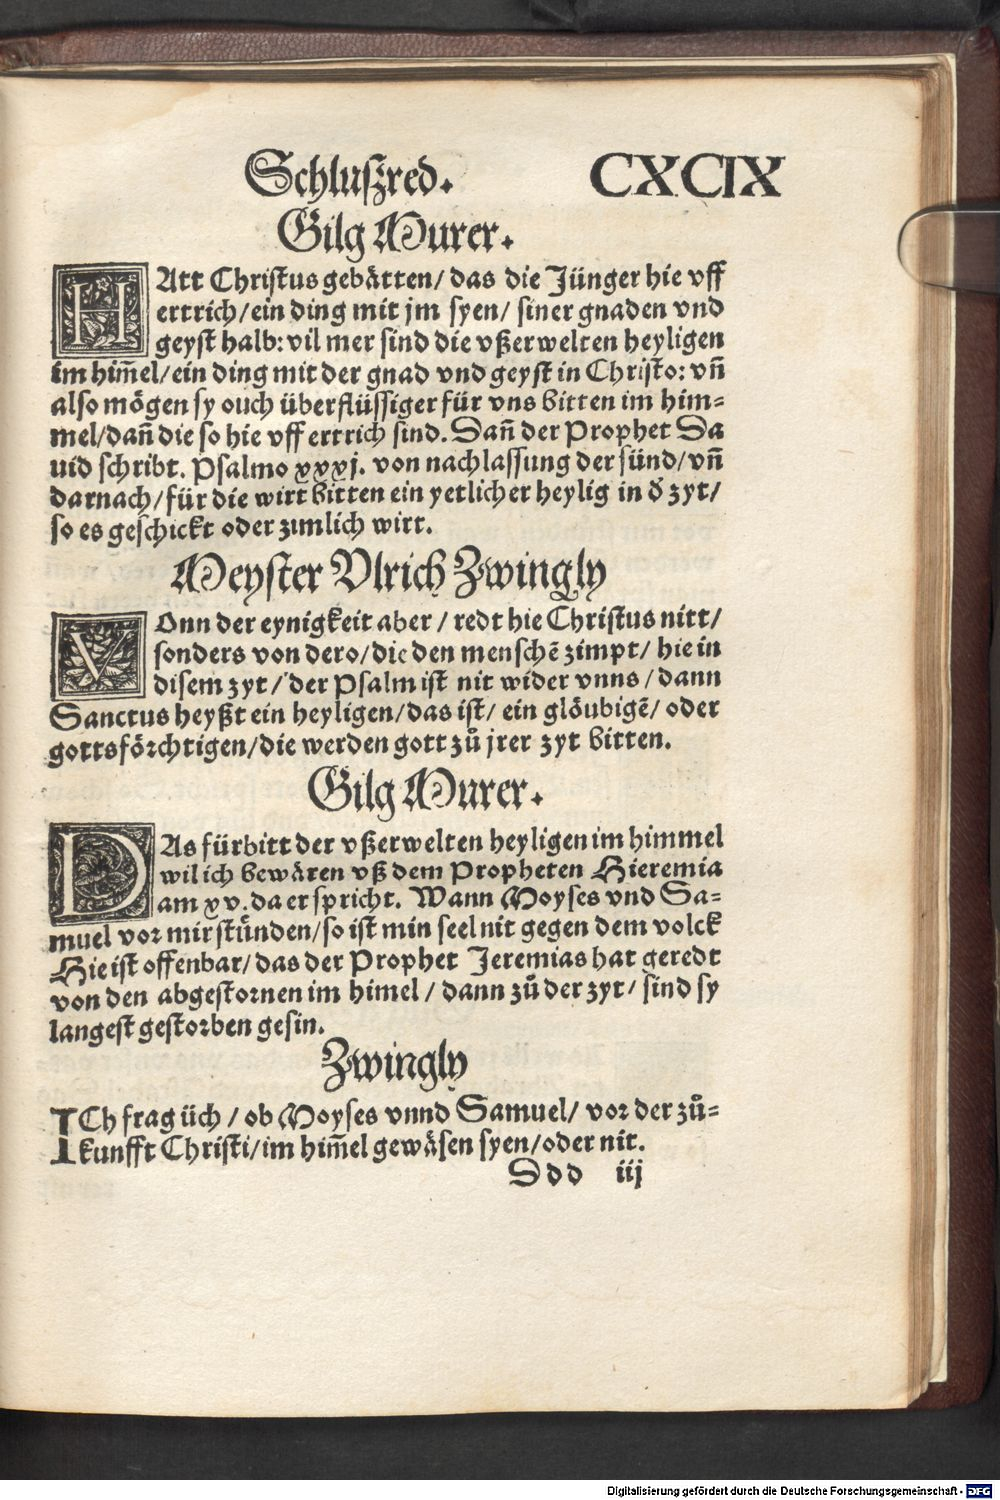 Schluszred. CXCIX
Gilg Murer.
HAtt Christus gebätten/ das die Jünger hie vff
ertrich/ ein ding mit jm syen/ siner gnaden vnd
geyst halb: vil mer sind die vßerwelten heyligen
im him̄el/ ein ding mit der gnad vnd geyst in Christo: vn̄
also mögen sy ouch überflüssiger für vns bitten im him-
mel/ dan̄ die so hie vff ertrich sind. Dan̄ der Prophet Da
uid schribt. Psalmo xxxj. von nachlassung der sünd/ vn̄
darnach/ für die wirt bitten ein yetlicher heylig in d̕ zyt/
so es geschickt oder zimlich wirt.
Meyster Vlrich Zwingly
VOnn der eynigkeit aber / redt hie Christus nitt/
sonders von dero/ die den menschē zimpt/ hie in
disem zyt/ der Psalm ist nit wider vnns / dann
Sanctus heyßt ein heyligen/ das ist/ ein glöubigē/ oder
gottsförchtigen/ die werden gott zů jrer zyt bitten.
Gilg Murer.
DAs fürbitt der vßerwelten heyligen im himmel
wil ich bewären vß dem Propheten Hieremia
am xv. da er spricht. Wann Moyses vnd Sa-
muel vor mir stünden/ so ist min seel nit gegen dem volck
Hie ist offenbar/ das der Prophet Jeremias hat geredt
von den abgestornen im himel / dann zů der zyt/ sind sy
langest gestorben gesin.
Zwingly
ICh frag üch / ob Moyses vnnd Samuel/ vor der zů-
kunfft Christi/ im him̄el gewäsen syen/ oder nit.
Ddd iij
Digitalisierung gefördert durch die Deutsche Forschungsgemeinschaft - DFG